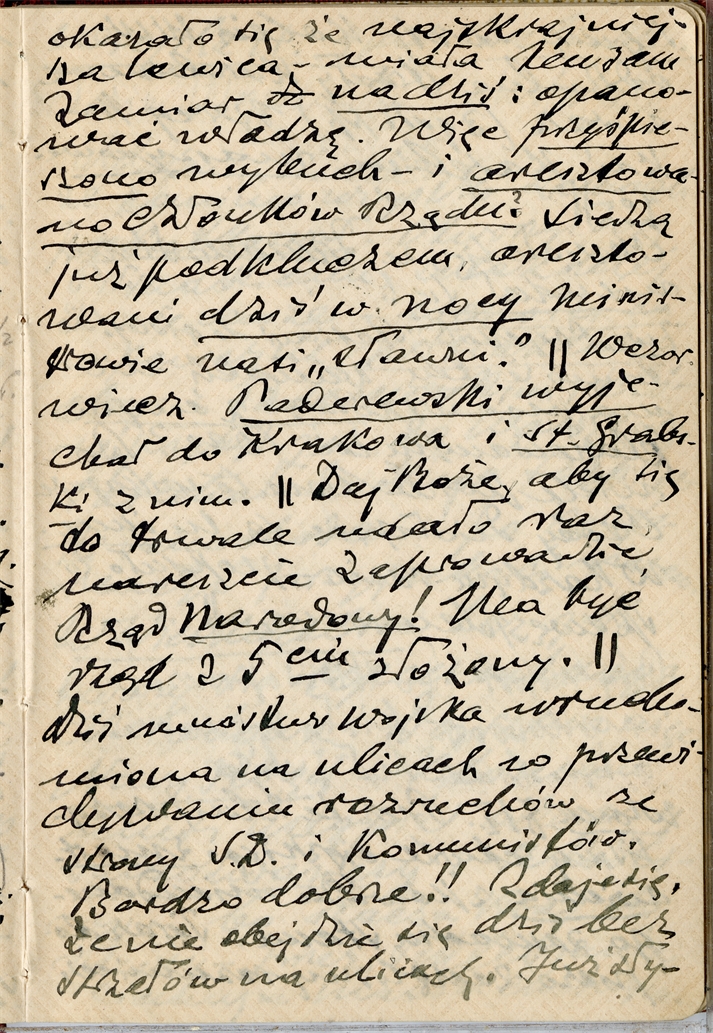 okazało się że najskrajniej-
sza lewica - miała ten sam
zamiar na dziś: opano-
wać władzę. Więc przyśpie-
szono wybuch - i aresztowa-
no członków Rządu! Siedzą
już pod kluczem, areszto-
wani dziś w nocy minis-
trowie nasi „sławni." || Wczor.
wiecz. Paderewski wyje-
chał do Krakowa i St. Grabs-
ki z nim. || Daj Boże, aby się
to trwale udało raz
nareszcie zaprowadzić
Rząd Narodowy! Ma być
rząd z 5ciu złożony. ||
Dziś mnóstwo wojska urucho-
miona na ulicach w przewi-
dywaniu rozruchów ze
strony S.D. i Komunistów.
Bardzo dobrze!! Zdaje się,
że nie obejdzie się dziś bez
strzałów na ulicach. Już sły-